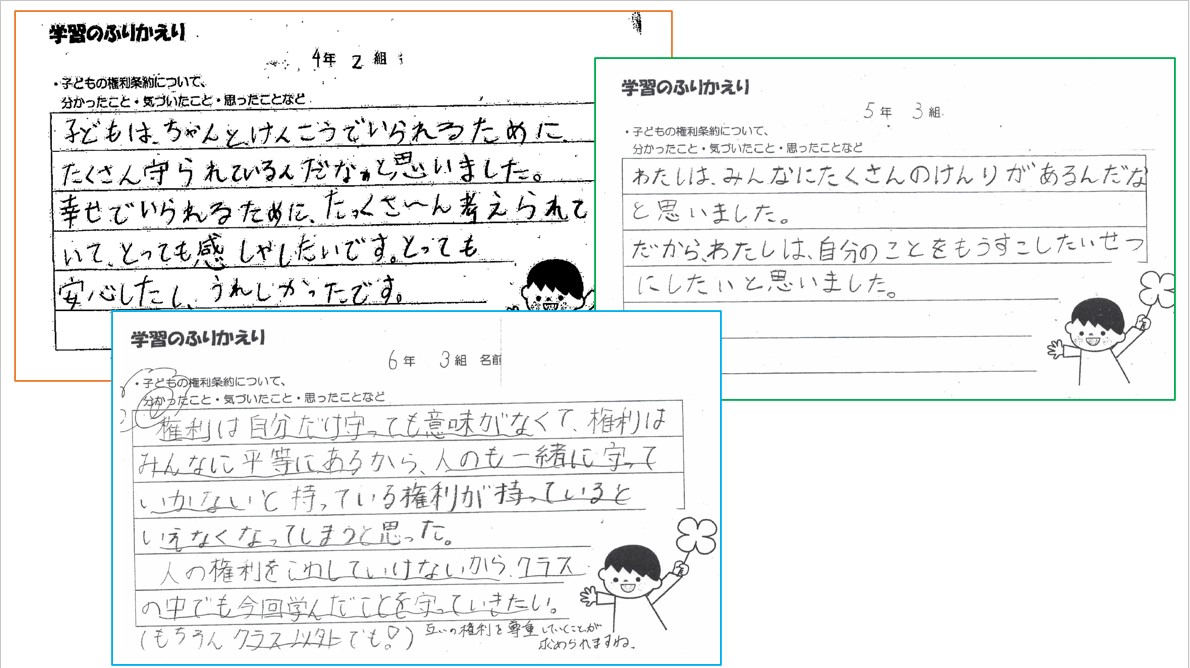 学習のふりかえり
4年 2 組
・子どもの権利条約について、
分かったこと・気づいたこと・思ったことなど
子どもは、ちゃんとけんこうでいられるために、
たくさん守られているんだなぁと思いました。
幸せでいられるために、たっくさ〜ん考えられて
いて、とっても感しゃしたいです。とっても
安心したし、うれしかったです。
学習のふりかえり
5年 3組
・子どもの権利条約について、
分かったこと・気づいたこと・思ったことなど
わたしは、みんなにたくさんのけんりがあるんだな
と思いました。
だから、わたしは、自分のことをもうすこしたいせつ
にしたいと思いました。
学習のふりかえり
6年 3組 名前
・子どもの権利条約について、
分かったこと・気づいたこと・思ったことなど
権利は自分だけ守っても意味がなくて、権利は
みんなに平等にあるから、人のも一緒に守って
いかないと持っている権利が持っていると
いえなくなってしまうと思った。
人の権利をこわしていけないから、クラス
の中でも今回学んだことを守っていきたい。
(もちろんクラス以外でも!)
互いの権利を尊重していくことが
求められますね。